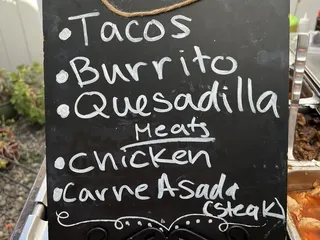 • Tacos
• Burrito
• Quesadilla
Meats
• Chicken
• Carne Asada
(Steak)